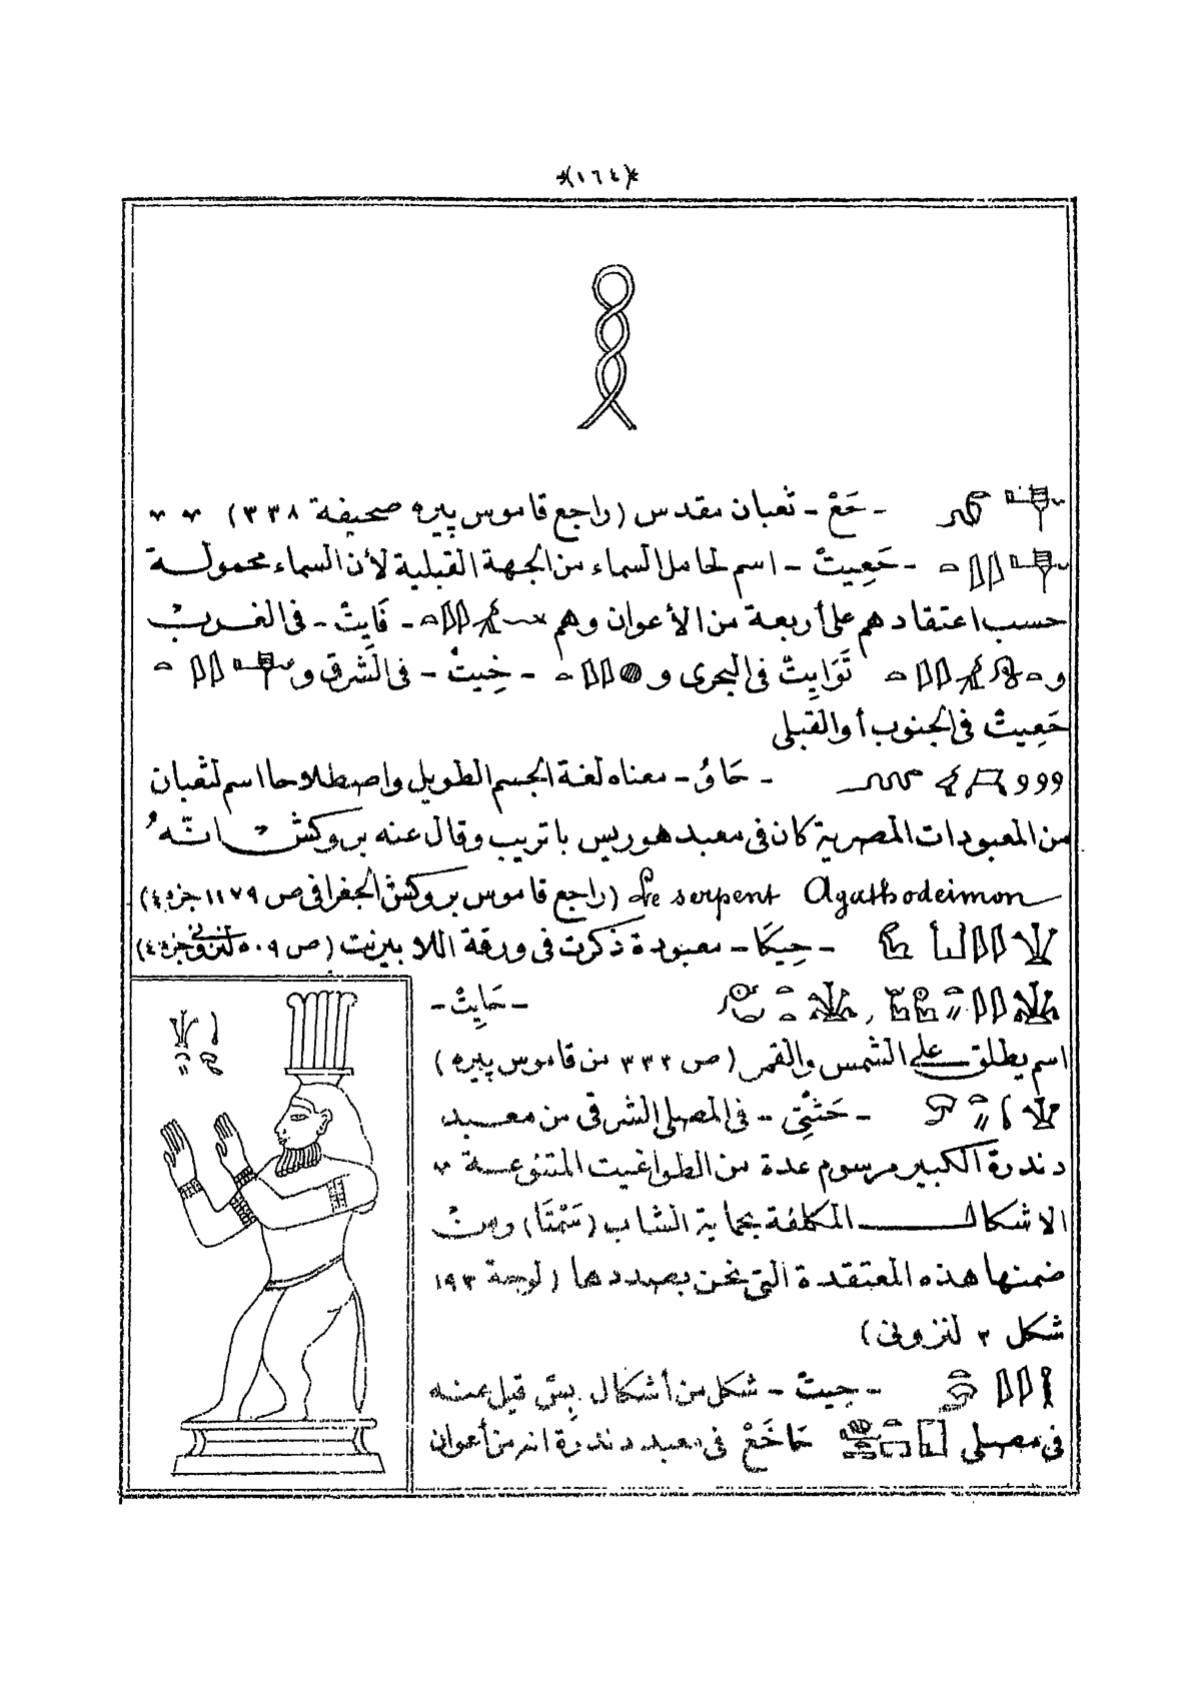 *(١٦٤)*
- حَعْ - ثعبان مقدس (راجع قاموس پيره صحيفة ٣٣٨)
- حَعِيتْ - اسم لحامل السماء من الجهة القبلية لأن السماء محمولة
حسب اعتقادهم على أربعة من الأعوان وهم - فَايِتْ - فى الغرب
و تَوَايِتْ فى البحرى و - خِيتْ - فى الشرق و
حَعِيتْ فى الجنوب أو القبلى
- حَاوُ - معناه لغة الجسم الطويل واصطلاحا اسم لثعبان
من المعبودات المصرية كان فى معبد هوريس باتريب وقال عنه بروكش انه
Le serpent Agathodeimon (راجع قاموس بروكش الجغرافى ص ١١٧٩ جزء ٤)
- حِيكَا - معبودة ذكرت فى ورقة اللابيرنت (ص ٥٠٩ لنزونى جزء ٤)
- حَايِتْ -
اسم يطلق على الشمس والقمر (ص ٣٣٢ من قاموس پيره)
- حَنْتِى - فى المصلى الشرقى من معبد
دندرة الكبير مرسوم عدة من الطواغيت المتنوعة
الاشكال المكلفة بحماية الشاب (سَمْتَا) ومن
ضمنها هذه المعتقدة التى نحن بصددها (لوحة ١٩٣
شكل ٣ لنزونى)
- حِيتْ - شكل من أشكال بِسْ قيل عنه
فى مصلى حَاخَعْ فى معبد دندرة انه من أعوان